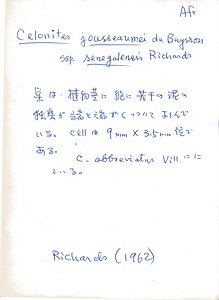 Afr
Celonites jousseaumei du Buysson
ssp. senegalensis Richards
巣は、植向茎に 若干の泥の
いる。 cell は 9mm × 3.5mm 位で
ある。
C. abbreviatus Vill. にに
ている。
Richards (1962)